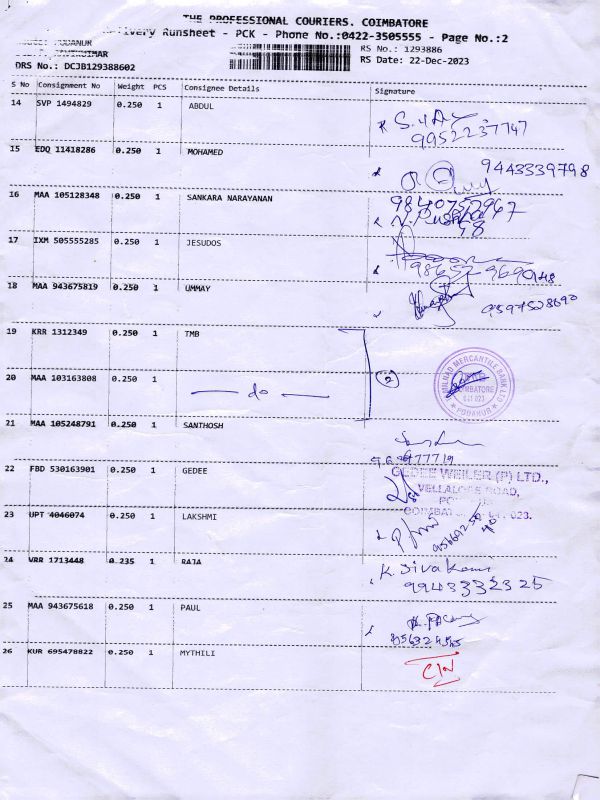 THE PROFESSIONAL COURIERS. COIMBATORE
Delivery Runsheet - PCK - Phone No.:0422-3505555 - Page No.:2
PODANUR
RS No.: 1293886
DRS No.: DCJB129388602
RS Date: 22-Dec-2023
S No Consignment No Weight PCS Consignee Details Signature
14 SVP 1494829 0.250 1 ABDUL
9952237747
15 EDQ 11418286 0.250 1 MOHAMED
9443339798
16 MAA 105128348 0.250 1 SANKARA NARAYANAN
9840752967
17 IXM 505555285 0.250 1 JESUDOS
18 MAA 943675819 0.250 1 UMMAY
9597528690
19 KRR 1312349 0.250 1 TMB
20 MAA 103163808 0.250 1 — do — 2
TAMILNAD MERCANTILE BANK LTD
COIMBATORE
641 023
PODANUR
21 MAA 105248791 0.250 1 SANTHOSH
22 FBD 530163901 0.250 1 GEDEE
GEDEE WEILER (P) LTD.,
VELLALORE ROAD,
23 UPT 4046074 0.250 1 LAKSHMI
24 VRR 1713448 0.235 1 RAJA
K. Sivakami
9943332325
25 MAA 943675618 0.250 1 PAUL
26 KUR 695478822 0.250 1 MYTHILI